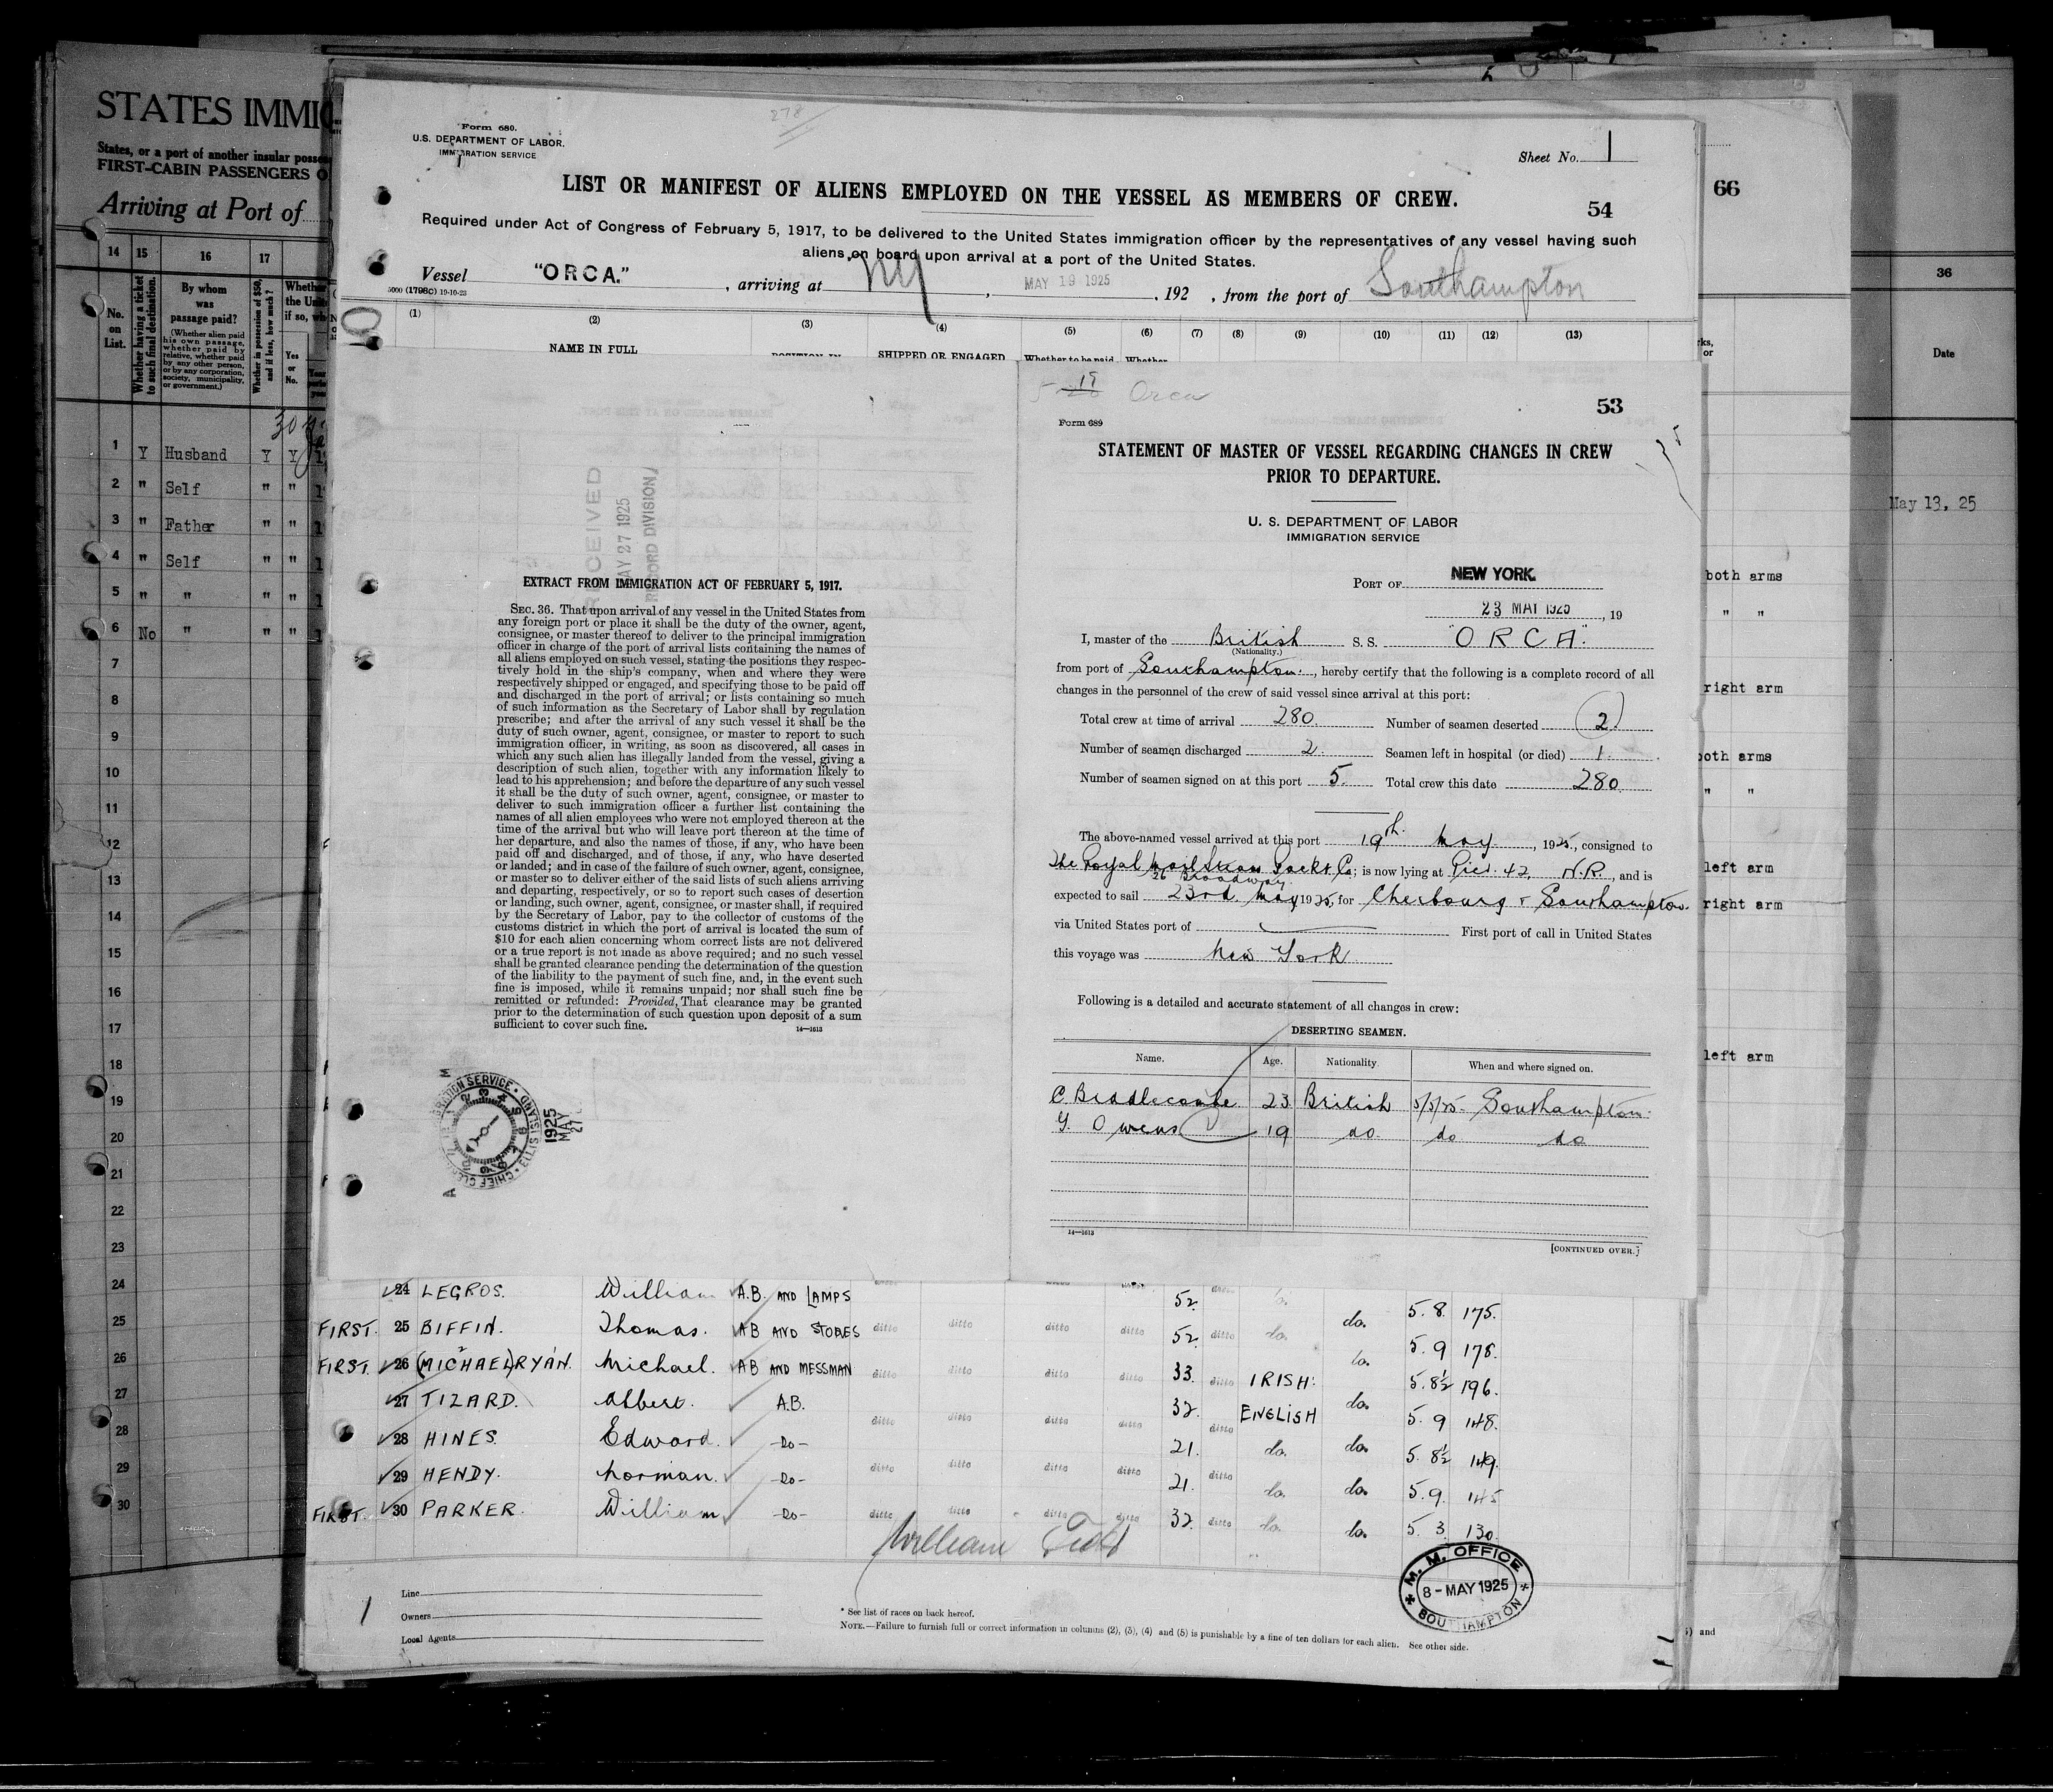 STATES IMMIG
States, or a port of another insular posses
FIRST-CABIN PASSENGERS O
Arriving at Port of
14 15 16 17
No. on List.
Whether having a ticket to such final destination.
By whom was passage paid?
(Whether alien paid his own passage, whether paid by relative, whether paid by any other person, or by any corporation, society, municipality, or government.)
Whether in possession of $50, and if less, how much?
Whether
the Unit
if so, wh
Yes or No.
1 Y Husband Y Y
2 " Self " "
3 " Father " "
4 " Self " "
5 " " " "
6 No " " "
7
8
9
10
11
12
13
14
15
16
17
18
19
20
21
22
23
24
25
26
27
28
29
30
278
Form 680.
U.S. DEPARTMENT OF LABOR.
IMMIGRATION SERVICE
Sheet No. 1
LIST OR MANIFEST OF ALIENS EMPLOYED ON THE VESSEL AS MEMBERS OF CREW.
54
Required under Act of Congress of February 5, 1917, to be delivered to the United States immigration officer by the representatives of any vessel having such
aliens on board upon arrival at a port of the United States.
Vessel "ORCA." , arriving at NY , MAY 19 1925 , 192 , from the port of Southampton
5000 (1798c) 19-10-23
(1) (2) (3) (4) (5) (6) (7) (8) (9) (10) (11) (12) (13)
NAME IN FULL POSITION IN SHIPPED OR ENGAGED Whether to be paid Whether
RECEIVED
MAY 27 1925
RECORD DIVISION
EXTRACT FROM IMMIGRATION ACT OF FEBRUARY 5, 1917.
SEC. 36. That upon arrival of any vessel in the United States from
any foreign port or place it shall be the duty of the owner, agent,
consignee, or master thereof to deliver to the principal immigration
officer in charge of the port of arrival lists containing the names of
all aliens employed on such vessel, stating the positions they respec-
tively hold in the ship's company, when and where they were
respectively shipped or engaged, and specifying those to be paid off
and discharged in the port of arrival; or lists containing so much
of such information as the Secretary of Labor shall by regulation
prescribe; and after the arrival of any such vessel it shall be the
duty of such owner, agent, consignee, or master to report to such
immigration officer, in writing, as soon as discovered, all cases in
which any such alien has illegally landed from the vessel, giving a
description of such alien, together with any information likely to
lead to his apprehension; and before the departure of any such vessel
it shall be the duty of such owner, agent, consignee, or master to
deliver to such immigration officer a further list containing the
names of all alien employees who were not employed thereon at the
time of the arrival but who will leave port thereon at the time of
her departure, and also the names of those, if any, who have been
paid off and discharged, and of those, if any, who have deserted
or landed; and in case of the failure of such owner, agent, consignee,
or master so to deliver either of the said lists of such aliens arriving
and departing, respectively, or so to report such cases of desertion
or landing, such owner, agent, consignee, or master shall, if required
by the Secretary of Labor, pay to the collector of customs of the
customs district in which the port of arrival is located the sum of
$10 for each alien concerning whom correct lists are not delivered
or a true report is not made as above required; and no such vessel
shall be granted clearance pending the determination of the question
of the liability to the payment of such fine, and, in the event such
fine is imposed, while it remains unpaid; nor shall such fine be
remitted or refunded: Provided, That clearance may be granted
prior to the determination of such question upon deposit of a sum
sufficient to cover such fine.
14—1613
IMMIGRATION SERVICE • ELLIS ISLAND • CHIEF CLERK
1925 MAY 27
5- 19 Orca
53
Form 689
STATEMENT OF MASTER OF VESSEL REGARDING CHANGES IN CREW
PRIOR TO DEPARTURE.
U. S. DEPARTMENT OF LABOR
IMMIGRATION SERVICE
PORT OF NEW YORK.
23 MAY 1925 , 19
I, master of the British S. S. "ORCA."
(Nationality.)
from port of Southampton. , hereby certify that the following is a complete record of all
changes in the personnel of the crew of said vessel since arrival at this port:
Total crew at time of arrival 280. Number of seamen deserted 2
Number of seamen discharged 2. Seamen left in hospital (or died) 1.
Number of seamen signed on at this port 5. Total crew this date 280
The above-named vessel arrived at this port 19th. May , 1925., consigned to
The Royal Mail Steam Packt Co; is now lying at Pier. 42, N.R. , and is
26 Broadway.
expected to sail 23rd. May 1925, for Cherbourg & Southampton.
via United States port of First port of call in United States
this voyage was New York
Following is a detailed and accurate statement of all changes in crew:
DESERTING SEAMEN.
Name. Age. Nationality. When and where signed on.
C. Braddlecombe 23 British 5/5/25- Southampton.
G. Owens 19 do. do do
14—1613
[CONTINUED OVER.]
24 LEGROS. William A.B. AND LAMPS 52. do. 5. 8. 175.
FIRST. 25 BIFFIN. Thomas. AB AND STORES ditto ditto ditto ditto 52. ditto do. do. 5. 9 178.
FIRST. 26 (MICHAEL) RYAN. Michael. AB AND MESSMAN ditto ditto ditto ditto 33. ditto IRISH. do. 5. 8½ 196.
27 TIZARD. Albert. A.B. ditto ditto ditto ditto 32. ditto ENGLISH do. 5. 9 148.
28 HINES. Edward. -DO- 21. do. do. 5. 8½ 149.
29 HENDY. Norman. -DO- ditto ditto ditto ditto 21. ditto do. do. 5. 9. 145
FIRST. 30 PARKER. William -DO- ditto ditto ditto ditto 32. ditto do. do. 5. 3. 130.
M. M. OFFICE
8 - MAY 1925
SOUTHAMPTON
Line
Owners
Local Agents
1
* See list of races on back hereof.
NOTE.—Failure to furnish full or correct information in columns (2), (3), (4) and (5) is punishable by a fine of ten dollars for each alien. See other side.
66
36
ks,
or
Date
May 13, 25
both arms
" "
right arm
both arms
" "
left arm
right arm
left arm
) and